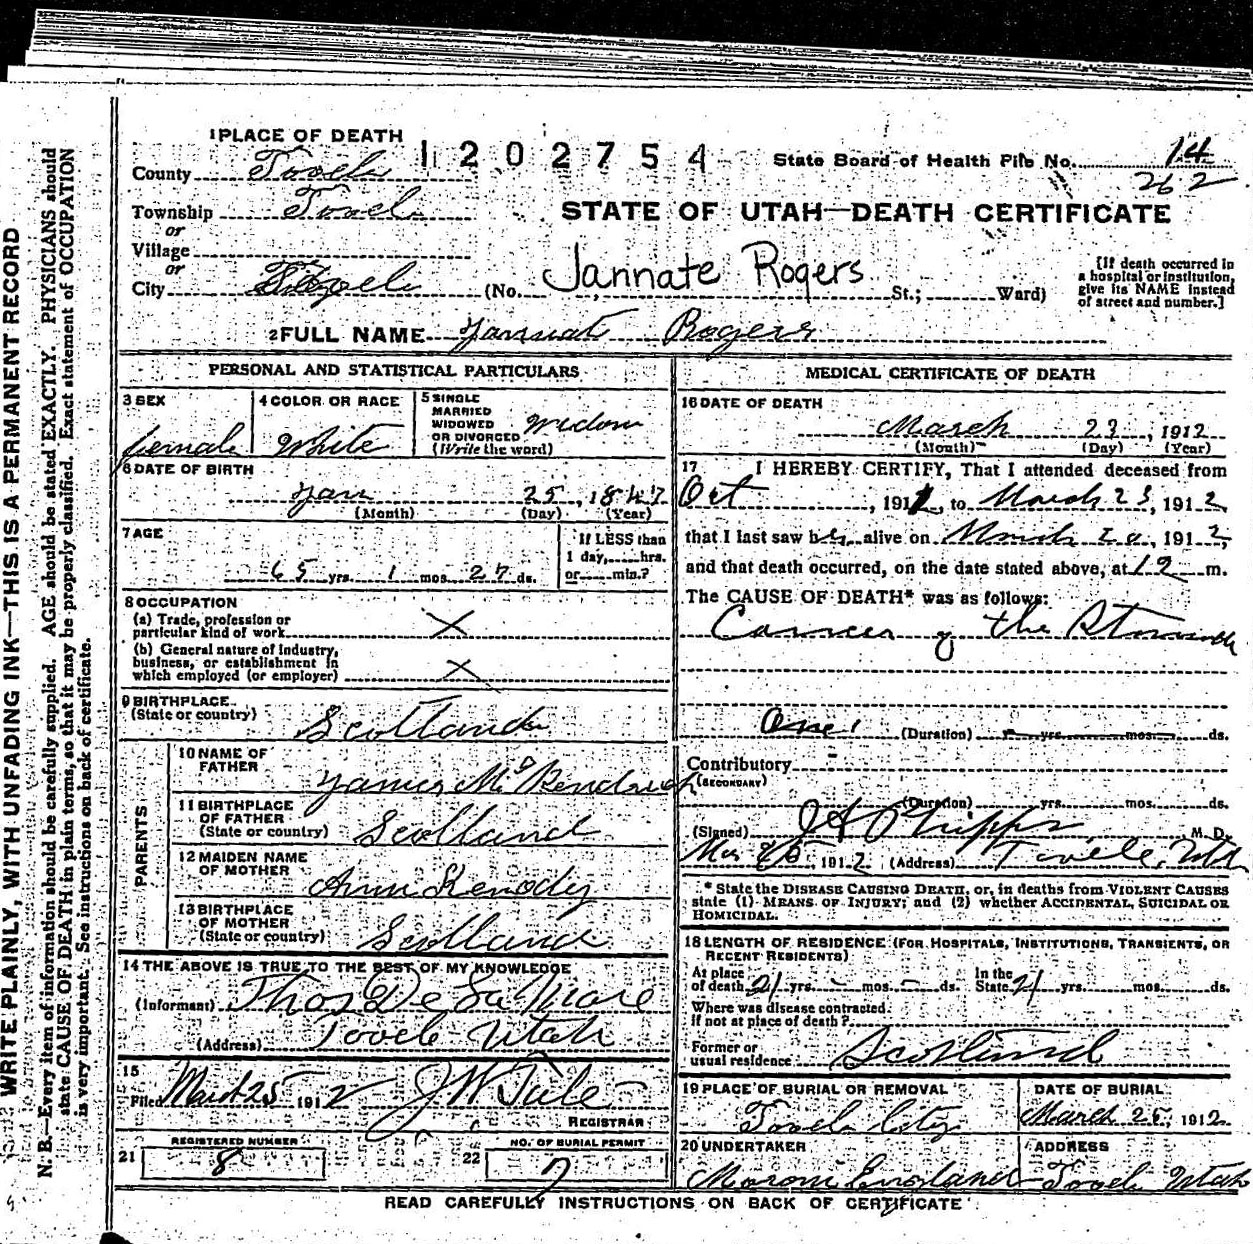 1 PLACE OF DEATH
1202754
State Board of Health File No. 14
262
County Tooele
Township Tooele
or
Village
or
City Tooele
STATE OF UTAH—DEATH CERTIFICATE
(No. Jannate Rogers St.; Ward)
[If death occurred in
a hospital or institution,
give its NAME instead
of street and number.]
2 FULL NAME Jannate Rogers
PERSONAL AND STATISTICAL PARTICULARS
3 SEX
female
4 COLOR OR RACE
White
5 SINGLE
MARRIED
WIDOWED
OR DIVORCED
(Write the word)
Widow
6 DATE OF BIRTH
Jan 25, 1847
(Month) (Day) (Year)
7 AGE
65 yrs. 1 mos. 27 ds.
If LESS than
1 day, hrs.
or min.?
8 OCCUPATION
(a) Trade, profession or
particular kind of work X
(b) General nature of industry,
business, or establishment in
which employed (or employer) X
9 BIRTHPLACE
(State or country) Scotland
PARENTS
10 NAME OF
FATHER
James McKendrick
11 BIRTHPLACE
OF FATHER
(State or country) Scotland
12 MAIDEN NAME
OF MOTHER
Ann Kenody
13 BIRTHPLACE
OF MOTHER
(State or country) Scotland
14 THE ABOVE IS TRUE TO THE BEST OF MY KNOWLEDGE
(Informant) Thos De La Mare
(Address) Tooele Utah
15
Filed March 25 1912 J. W. Tate
REGISTRAR
21 REGISTERED NUMBER
8
22 NO. OF BURIAL PERMIT
7
MEDICAL CERTIFICATE OF DEATH
16 DATE OF DEATH
March 23, 1912
(Month) (Day) (Year)
17 I HEREBY CERTIFY, That I attended deceased from
Oct, 1911, to March 23, 1912
that I last saw her alive on March 20, 1912,
and that death occurred, on the date stated above, at 12 m.
The CAUSE OF DEATH* was as follows:
Cancer of the Stomach
One (Duration) yrs. mos. ds.
Contributory
(SECONDARY)
(Duration) yrs. mos. ds.
(Signed) J A Phipps M. D.
Mar 25 1912 (Address) Tooele, Utah
* State the DISEASE CAUSING DEATH, or, in deaths from VIOLENT CAUSES
state (1) MEANS OF INJURY; and (2) whether ACCIDENTAL, SUICIDAL OR
HOMICIDAL.
18 LENGTH OF RESIDENCE (FOR HOSPITALS, INSTITUTIONS, TRANSIENTS, OR
RECENT RESIDENTS)
At place
of death 21 yrs. - mos. - ds.
In the
State 21 yrs. mos. ds.
Where was disease contracted.
if not at place of death?
Former or
usual residence Scotland
19 PLACE OF BURIAL OR REMOVAL
Tooele City
DATE OF BURIAL
March 25, 1912
20 UNDERTAKER
Moroni England
ADDRESS
Tooele Utah
READ CAREFULLY INSTRUCTIONS ON BACK OF CERTIFICATE
WRITE PLAINLY, WITH UNFADING INK—THIS IS A PERMANENT RECORD
N. B.—Every item of information should be carefully supplied. AGE should be stated EXACTLY. PHYSICIANS should
state CAUSE OF DEATH in plain terms, so that it may be properly classified. Exact statement of OCCUPATION
is very important. See instructions on back of certificate.